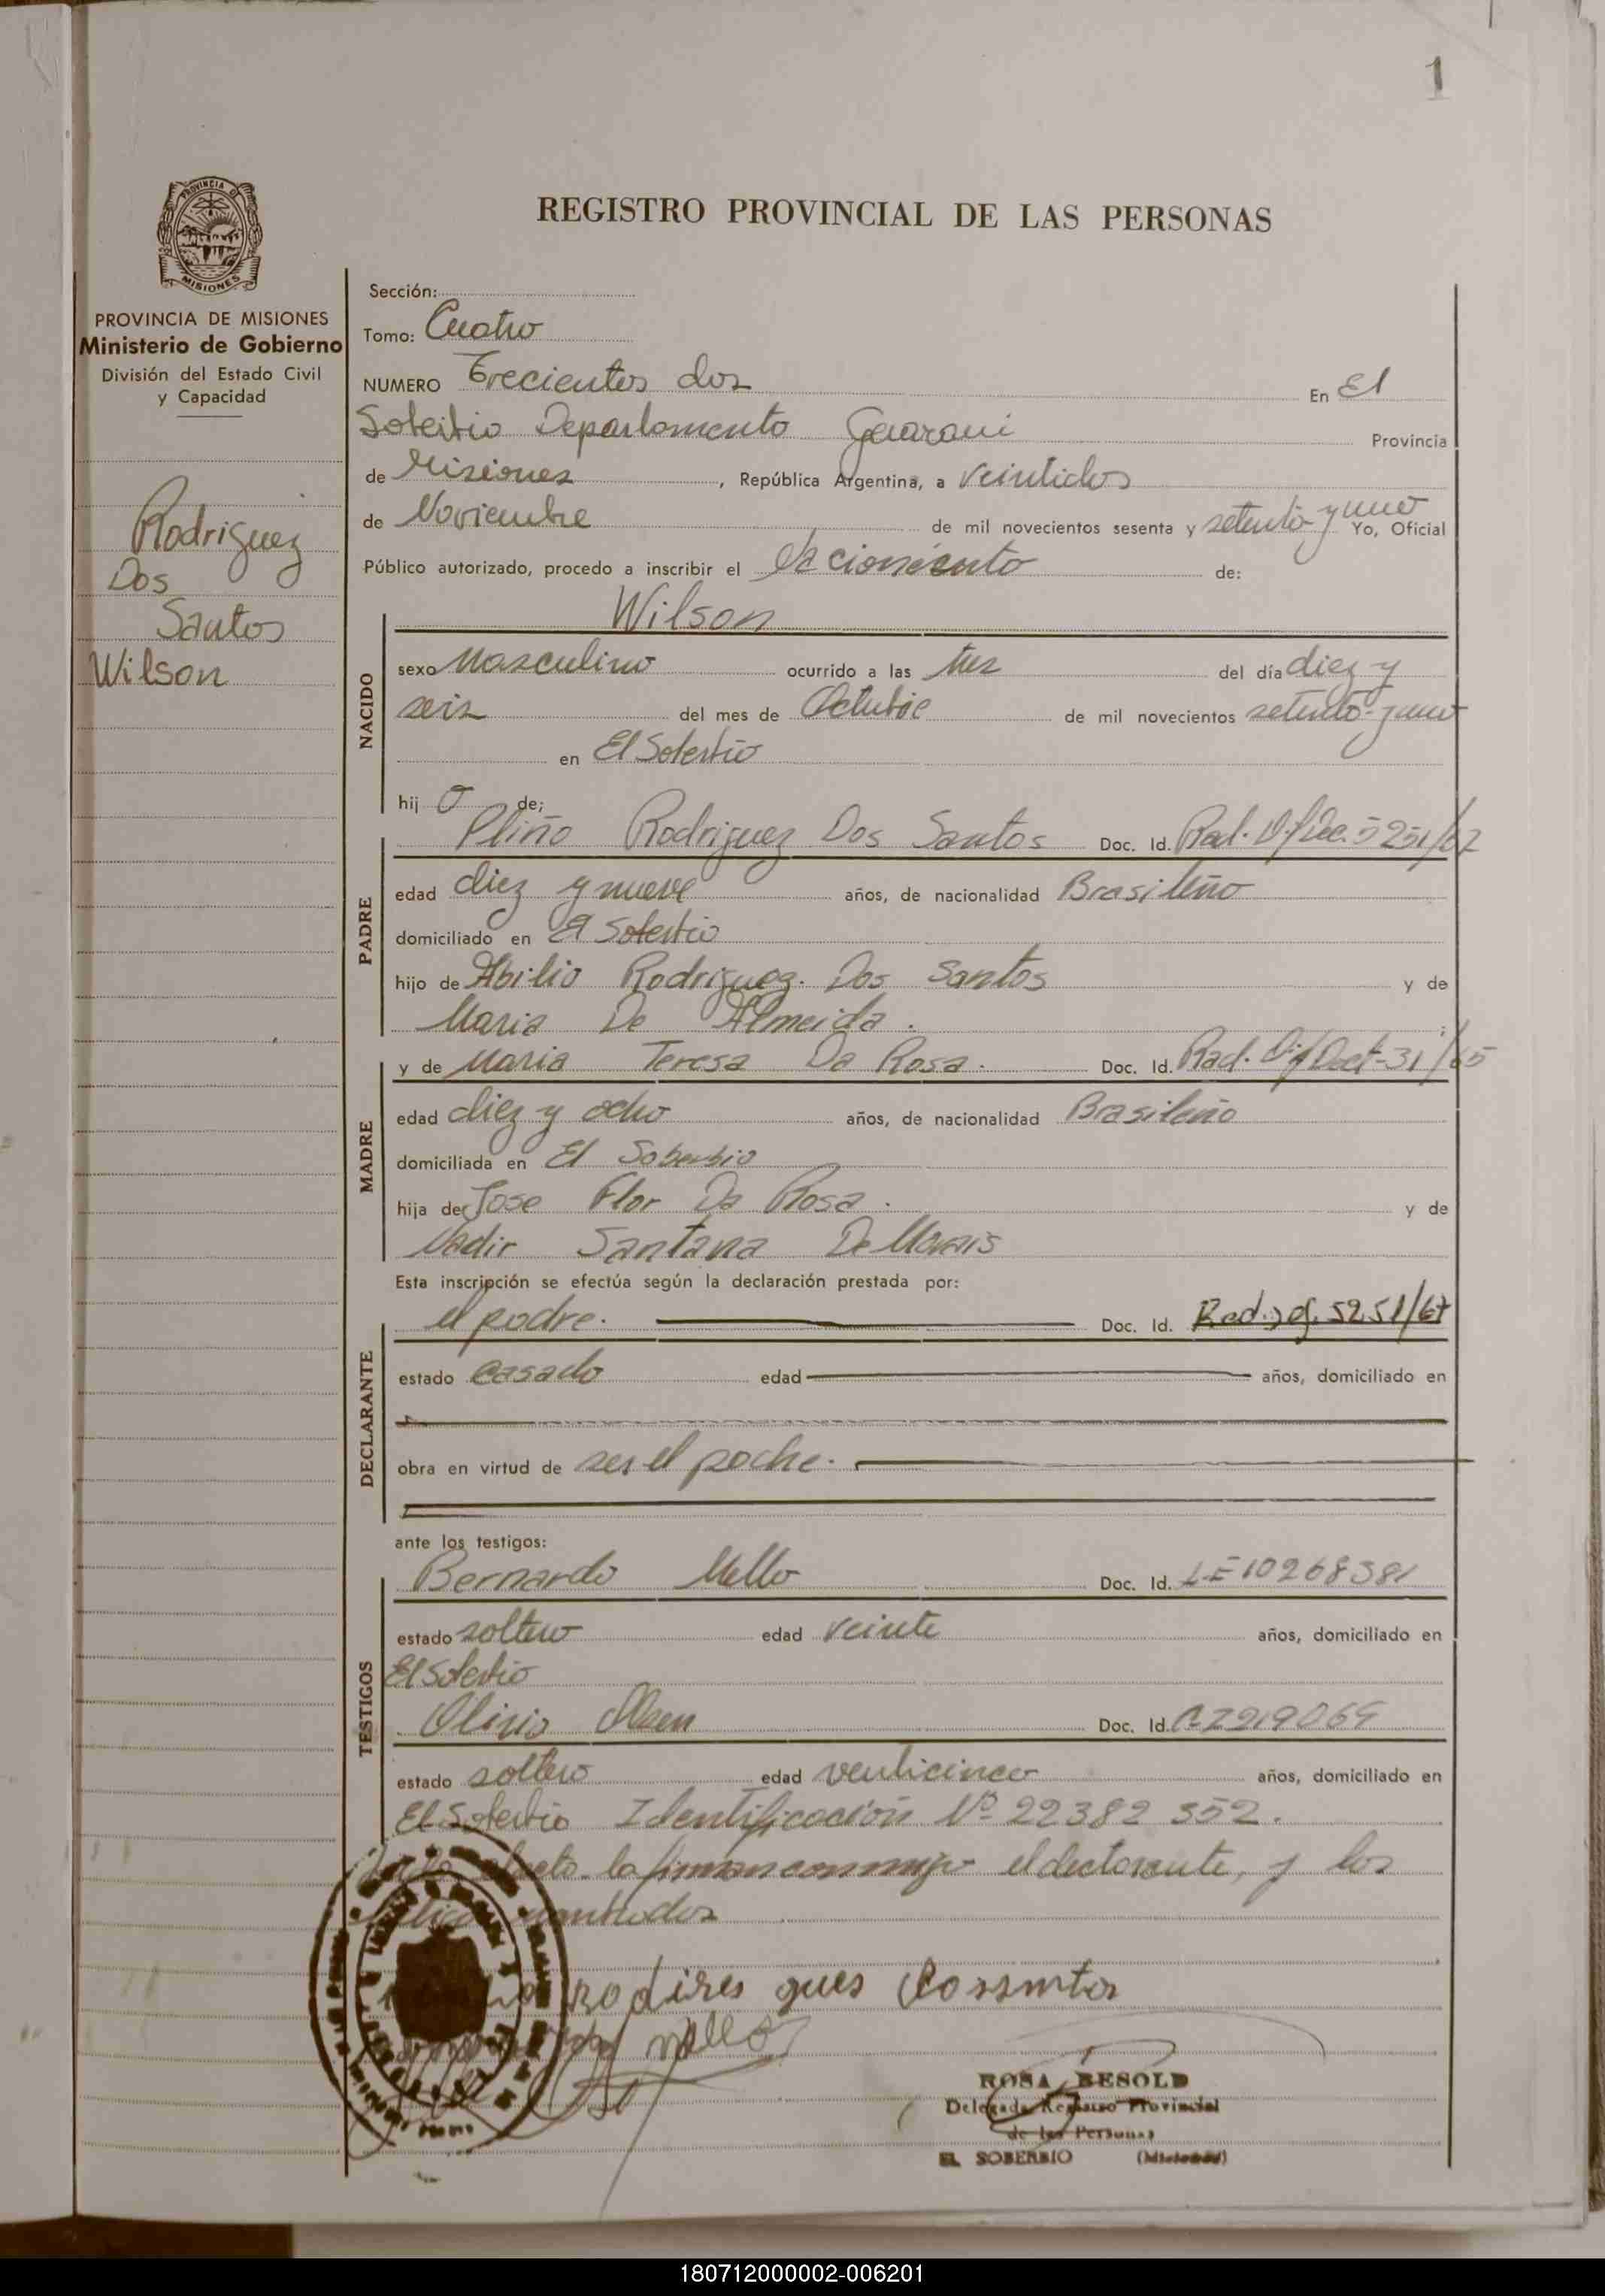 1
REGISTRO PROVINCIAL DE LAS PERSONAS
PROVINCIA DE
MISIONES
PROVINCIA DE MISIONES
Ministerio de Gobierno
División del Estado Civil
y Capacidad
Rodriguez
Dos
Santos
Wilson
Sección:
Tomo: Cuatro
NUMERO Trecientos dos En El
Soberbio Departamento Guarani Provincia
de Misiones, República Argentina, a veintidos
de Noviembre de mil novecientos sesenta y setenta y uno Yo, Oficial
Público autorizado, procedo a inscribir el nacimiento de:
Wilson
NACIDO
sexo Masculino ocurrido a las tres del día diez y
seis del mes de Octubre de mil novecientos setenta y uno
en El Soberbio
hij o de;
PADRE
Pliño Rodriguez Dos Santos Doc. Id. Rad. 5251/67
edad diez y nueve años, de nacionalidad Brasileño
domiciliado en El Soberbio
hijo de Abilio Rodriguez. Dos Santos y de
Maria De Almeida.
MADRE
y de Maria Teresa Da Rosa. Doc. Id. Rad. 31/65
edad diez y ocho años, de nacionalidad Brasileño
domiciliada en El Soberbio
hija de Jose Flor Da Rosa. y de
Nadir Santana De Morais
Esta inscripción se efectúa según la declaración prestada por:
DECLARANTE
el padre. Doc. Id. Rad. 5251/67
estado casado edad años, domiciliado en
obra en virtud de ser el padre.
ante los testigos:
TESTIGOS
Bernardo Mello Doc. Id. LE 10268381
estado soltero edad veinte años, domiciliado en
El Soberbio
Olinio Olsen Doc. Id. 7219069
estado soltero edad venticinco años, domiciliado en
El Soberbio Identificación Nº 22382 552.
acta la firman conmigo el declarante, y los
nombrados
rodires gues dossmtos
mello
ROSA BESOLD
Delegada Registro Provincial
de las Personas
EL SOBERBIO (Misiones)
180712000002-006201